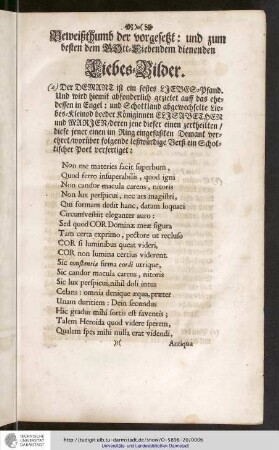 Beweißthumb der vorgesetzt: und zum
besten dem GOtt-Liebendem dienenden
Liebes-Bilder.
(a) Der DEMANT ist ein festes LIEBES-Pfand.
Und wird hiemit absonderlich gezielet auff das ehe-
dessen in Engel: und Schottland abgewechselte Lie-
bes-Kleinod beeder Königinnen ELISABETHEN
und MARIEN, deren jene dieser einen zertheilten /
diese jener einen im Ring eingefaßten Demant ver-
ehret, worüber folgende lesswürdige Verß ein Schot-
tischer Poet verfertiget:
Non me materies facit superbum,
Quod ferro insuperabilis, quod igni
Non candor macula carens, nitoris
Non lux perspicui, nec ars magistri,
Qui formam dedit hanc, datam loquaci
Circumvestiit eleganter auro:
Sed quod COR Dominæ meæ figura
Tam certa exprimo, pectore ut recluso
COR si luminibus queat videri,
COR non lumina certius viderent.
Sic constantia firma cordi utrique,
Sic candor macula carens, nitoris
Sic lux perspicui, nihil doli intus
Celans: omnia denique æqua, præter
Unam duritiem: Dein secundus
Hic gradus mihi sortis est faventis;
Talem Heroida quod videre sperem,
Qualem spes mihi nulla erat videndi,
Antiqua
TECHNISCHE
UNIVERSITÄT
DARMSTADT
Universitäts- und Landesbibliothek Darmstadt